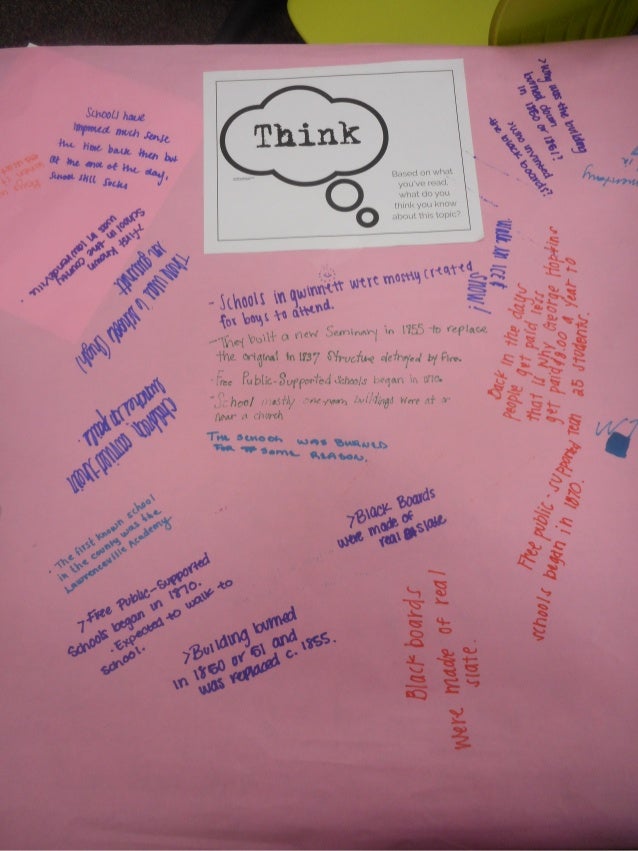 Think
Based on what
you've read,
what do you
think you know
about this topic?
Schools have
improved much sense
the time back then but
at the end of the day,
School still sucks
>first known
school in the county
was in lawrenceville.
There were 6 schools (high)
in gwinnett
- Schools in gwinnett were mostly created
for boys to attend.
- They built a new Seminary in 1855 to replace
the original in 1837 structure detroyed by fire.
· Free Public-Supported schools began in 1870.
- School mostly one-room buildings were at or
near a church
THE SCHOOL WAS BURNED
FOR SOME REASON.
Children carried their
in pails.
· The first known school
in the county was the
Lawrenceville Academy
>Free Public-Supported
Schools began in 1870.
· Expected to walk to
School.
>Building burned
in 1850 or 51 and
was replaced c. 1855.
>Black Boards
were made of
real slate
Black boards
were made of real
slate.
Back in the days
people get paid less
that is why George Hopkins
get paid $8.00 a year to
25 students.
Free public-supported
schools began in 1870.
snow!